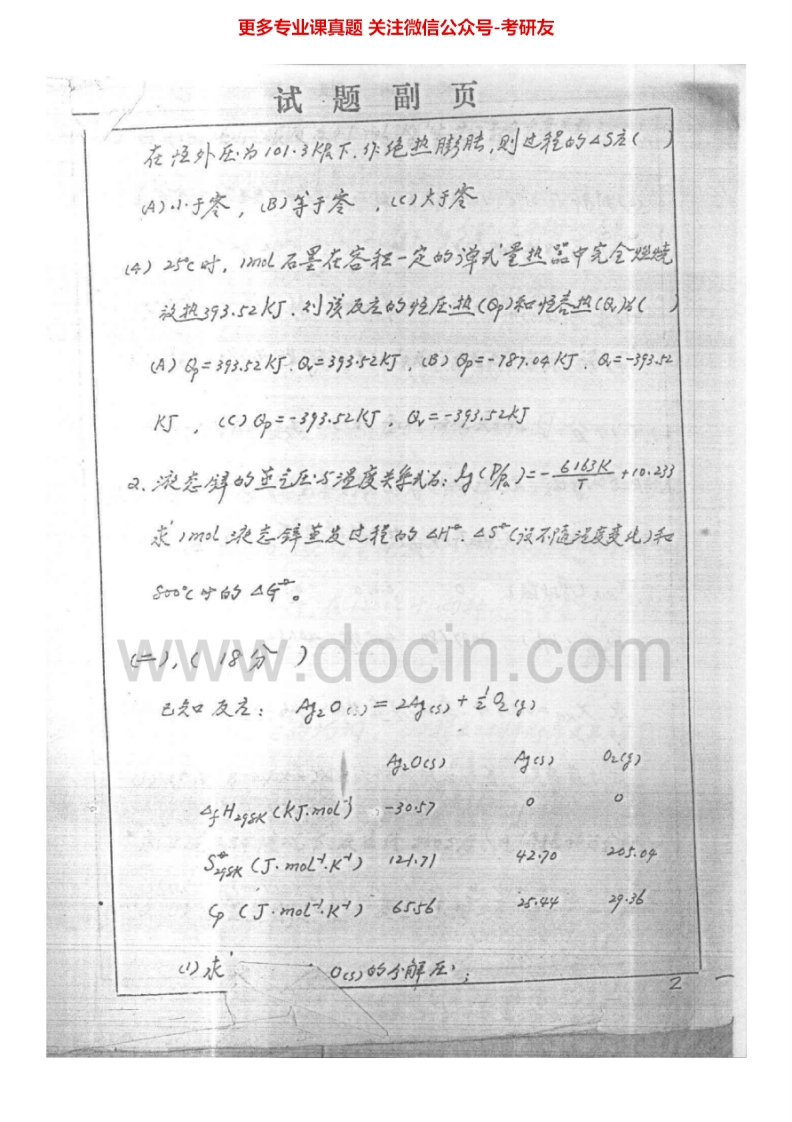 更多专业课真题 关注微信公众号-考研友
试题副页
在恒外压为101.3KPa下,作绝热膨胀,则过程的ΔS应( )
(A)小于零, (B)等于零, (C)大于零
(4) 25℃时, 1mol石墨在容积一定的弹式量热器中完全燃烧
放热393.52KJ.则该反应的恒压热(Qp)和恒容热(Qv)为( )
(A) Qp=393.52KJ. Qv=393.52KJ, (B) Qp=-787.04KJ. Qv=-393.52
KJ, (C) Qp=-393.52KJ, Qv=-393.52KJ
2. 液态锌的蒸气压与温度关系式为: lg(P/Pa)=-6163K/T+10.233
求1mol液态锌蒸发过程的ΔH°. ΔS°(设不随温度变化)和
800℃时的ΔG°。
www.docin.com
(二), (18分)
已知反应: Ag₂O(s)=2Ag(s)+½O₂(g)
Ag₂O(s) Ag(s) O₂(g)
ΔfH298K(KJ·mol⁻¹) -30.57 0 0
S°298K(J·mol⁻¹·K⁻¹) 121.71 42.70 205.04
Cp(J·mol⁻¹·K⁻¹) 65.56 25.44 29.36
(1)求 O(s)的分解压;
2